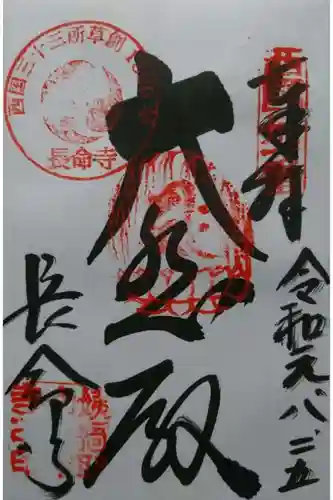 奉拝
令和元.八.二五
大悲殿
長命寺
西国三十三所草創
長命寺